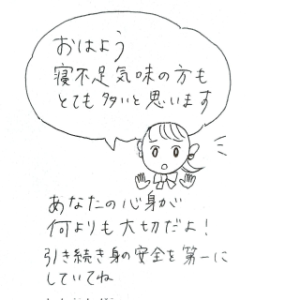 おはよう
寝不足気味の方も
とても多いと思います
あなたの心身が
何よりも大切だよ！
引き続き身の安全を第一に
していてね